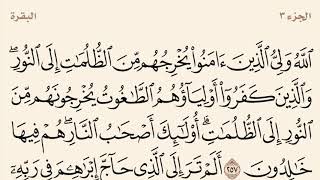 الجزء ٣ البقرة
ٱللَّهُ وَلِيُّ ٱلَّذِينَ ءَامَنُوا۟ يُخْرِجُهُم مِّنَ ٱلظُّلُمَٰتِ إِلَى ٱلنُّورِۖ
وَٱلَّذِينَ كَفَرُوٓا۟ أَوْلِيَآؤُهُمُ ٱلطَّٰغُوتُ يُخْرِجُونَهُم مِّنَ
ٱلنُّورِ إِلَى ٱلظُّلُمَٰتِۗ أُو۟لَٰٓئِكَ أَصْحَٰبُ ٱلنَّارِۖ هُمْ فِيهَا
خَٰلِدُونَ ٢٥٧ أَلَمْ تَرَ إِلَى ٱلَّذِى حَآجَّ إِبْرَٰهِۦمَ فِى رَبِّهِۦٓ